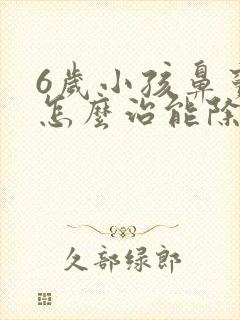 6歲小孩鼻
怎麼治能除
久部绿郎